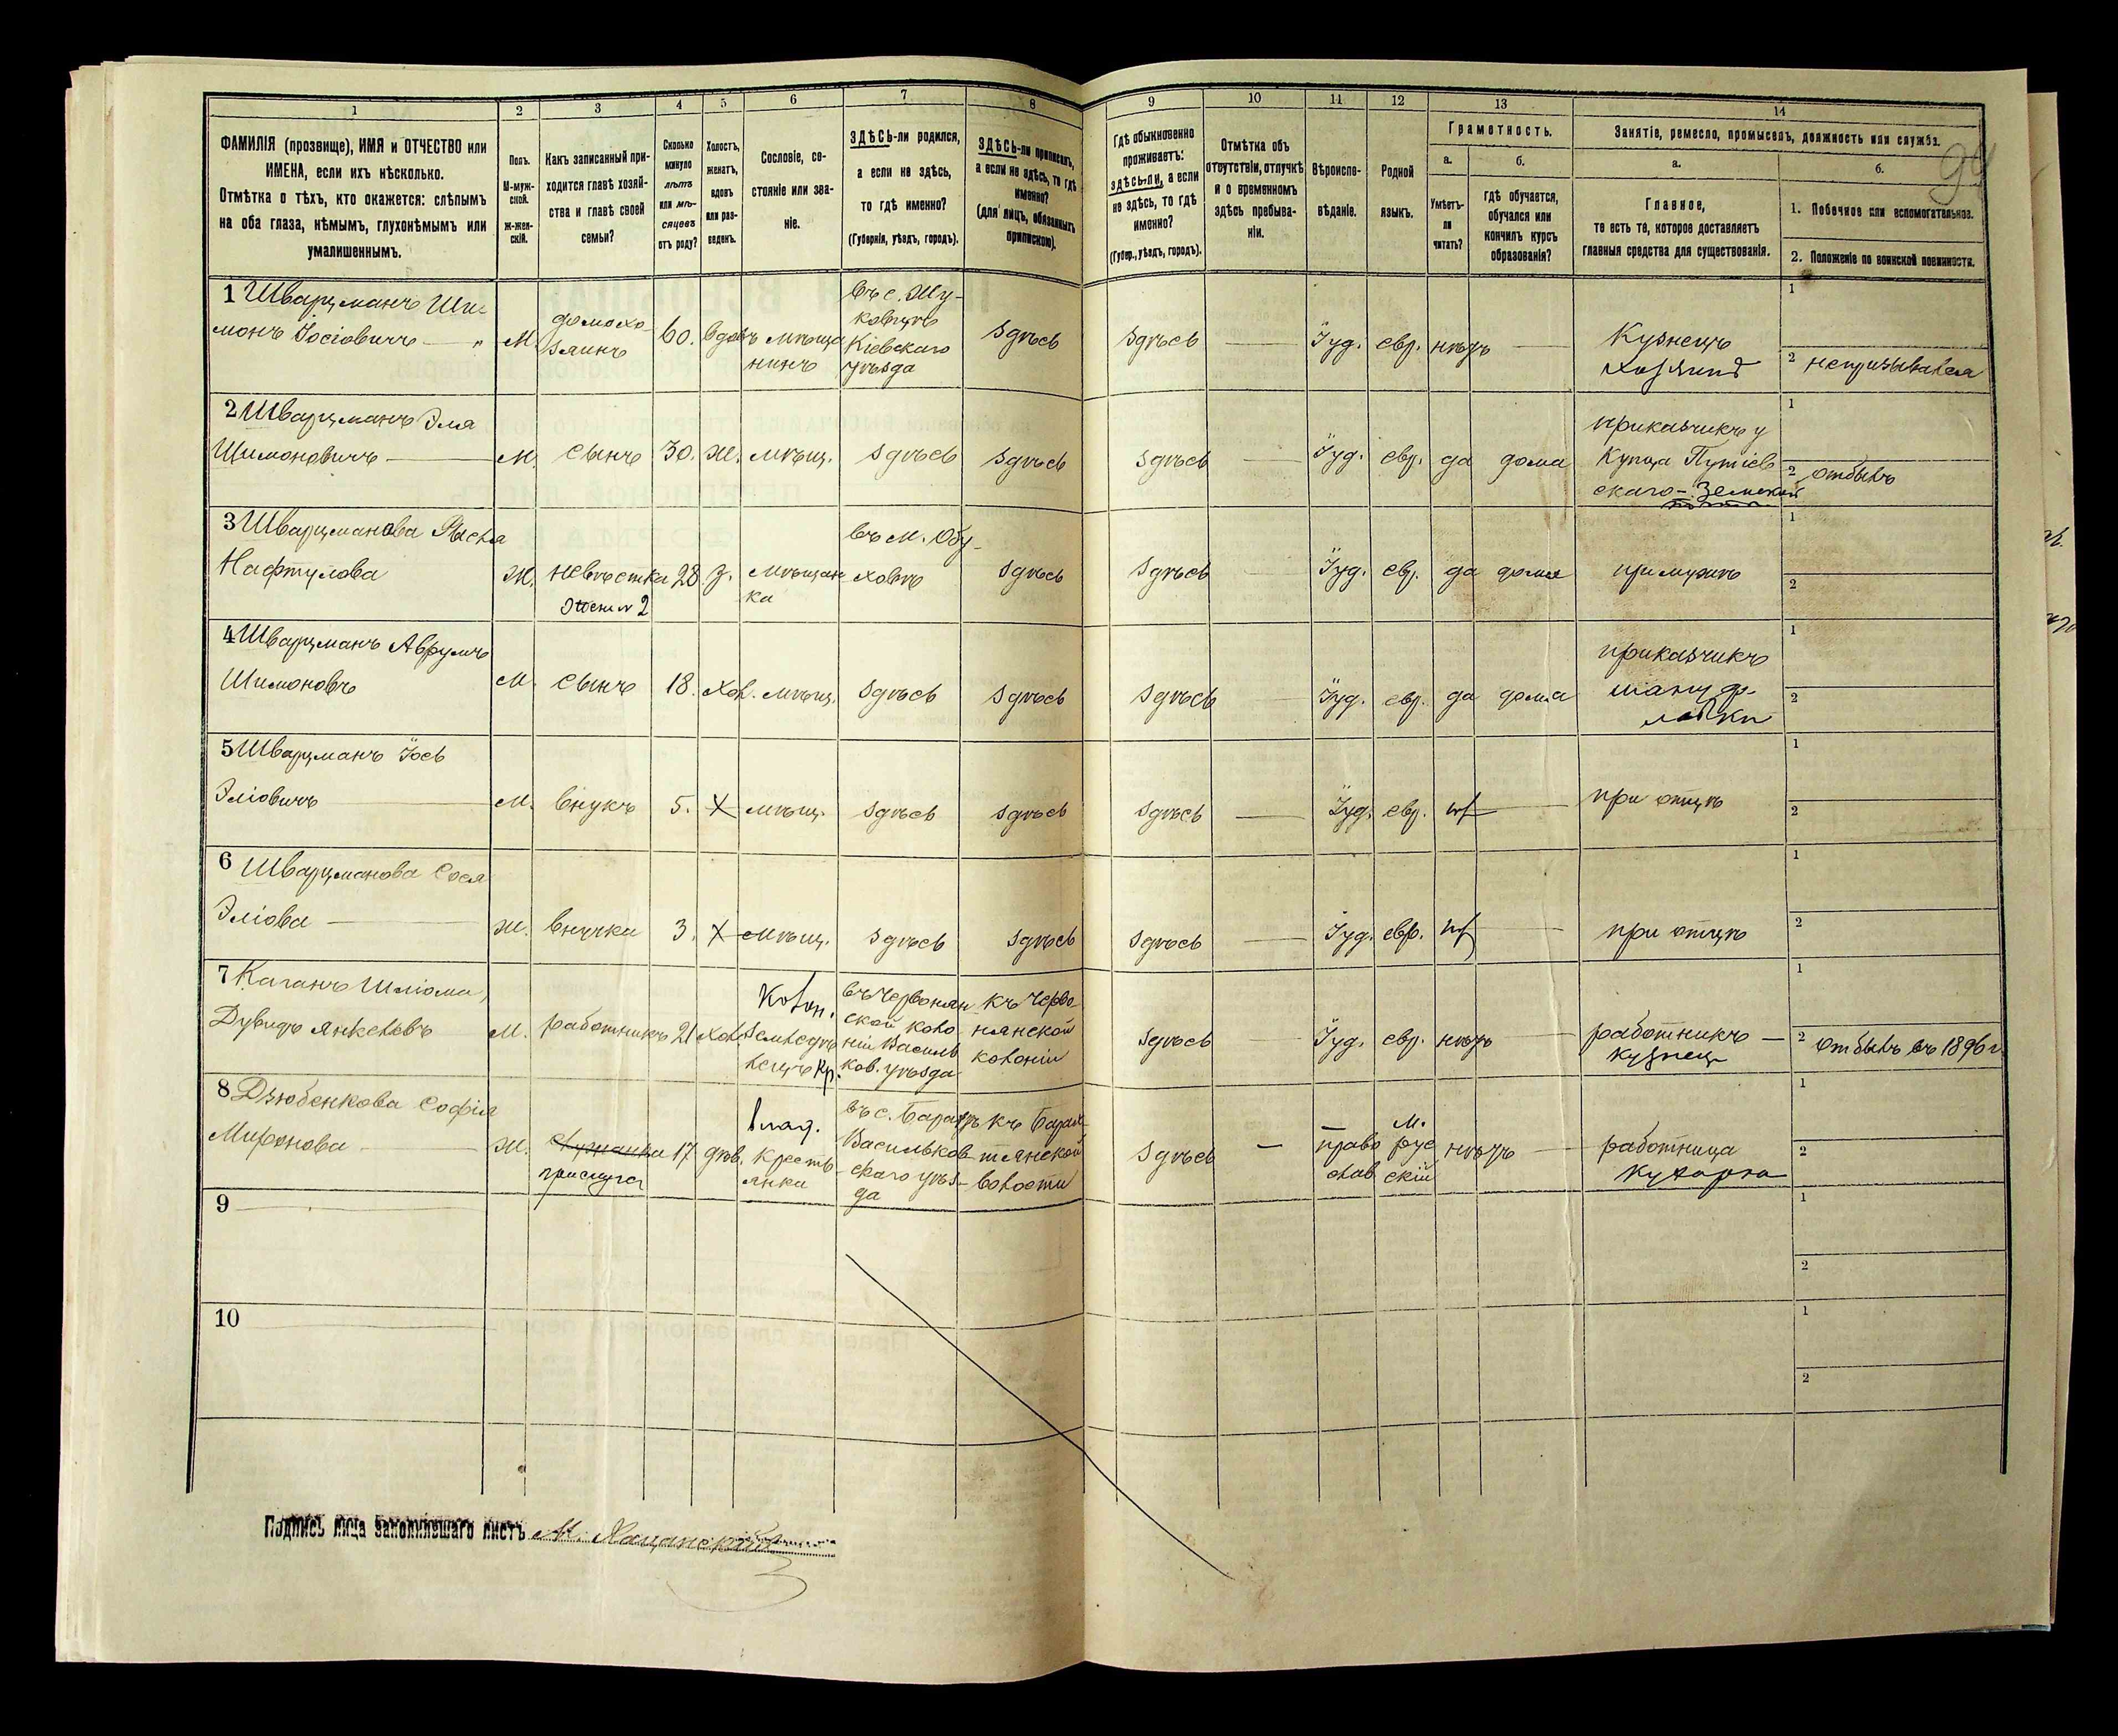 1 2 3 4 5 6 7 8 9 10 11 12 13 14
ФАМИЛІЯ (прозвище), ИМЯ и ОТЧЕСТВО или
ИМЕНА, если ихъ нѣсколько.
Отмѣтка о тѣхъ, кто окажется: слѣпымъ
на оба глаза, нѣмымъ, глухонѣмымъ или
умалишеннымъ.
Полъ.
М-муж-
ской.
ж-жен-
скій.
Какъ записанный при-
ходится главѣ хозяй-
ства и главѣ своей
семьи?
Сколько
минуло
лѣтъ
или мѣ-
сяцевъ
отъ роду?
Холостъ,
женатъ,
вдовъ
или раз-
веденъ.
Сословіе, со-
стояніе или зва-
ніе.
ЗДѢСЬ-ли родился,
а если не здѣсь,
то гдѣ именно?
(Губернія, уѣздъ, городъ).
ЗДѢСЬ-ли приписанъ,
а если не здѣсь, то гдѣ
именно?
(для лицъ, обязанныхъ
припискою).
Гдѣ обыкновенно
проживаетъ:
здѣсь-ли, а если
не здѣсь, то гдѣ
именно?
(Губер., уѣздъ, городъ).
Отмѣтка объ
отсутствіи, отлучкѣ
и о временномъ
здѣсь пребыва-
ніи.
Вѣроиспо-
вѣданіе.
Родной
языкъ.
Грамотность.
а.
Умѣетъ-
ли
читать?
б.
гдѣ обучается,
обучался или
кончилъ курсъ
образованія?
Занятіе, ремесло, промыселъ, должность или служба.
а.
Главное,
то есть то, которое доставляетъ
главныя средства для существованія.
б.
1. Побочное или вспомогательное.
2. Положеніе по воинской повинности.
1 Шварцманъ Ши-
монъ Іосіовичъ
М.
домохо-
зяинъ
60.
вдовъ
мѣща
нинъ
въ с. Жу-
ковцахъ
Кіевскаго
уѣзда
здѣсь
здѣсь
Іуд.
евр.
нѣтъ
Кузнецъ
хозяинъ
1
2 непризывался
2 Шварцманъ Эля
Шимоновичъ
М.
сынъ
30.
ж.
мѣщ.
здѣсь
здѣсь
здѣсь
Іуд.
евр.
да
дома
приказчикъ у
Купца Путіев
скаго-Земской
1
2 отбылъ
3 Шварцманова
Нафтулова
Ж.
невѣстка
жена № 2
28
з.
мѣщан
ка
въ м. Обу-
ховѣ
здѣсь
здѣсь
Іуд.
евр.
да
дома
при мужѣ
1
2
4 Шварцманъ Аврумъ
Шимоновъ
М
сынъ
18.
хол.
мѣщ.
здѣсь
здѣсь
здѣсь
Іуд.
евр.
да
дома
приказчикъ
1
2
5 Шварцманъ Іось
Эліовичъ
М.
внукъ
5.
х
мѣщ.
здѣсь
здѣсь
здѣсь
Іуд.
евр.
при отцѣ
1
2
6 Шварцманова Сося
Эліова
ж.
внучка
3.
х
мѣщ.
здѣсь
здѣсь
здѣсь
Іуд.
евр.
при отцѣ
1
2
7 Каганъ Шліома
Дувидъ Янкелевъ
М.
работникъ
21
хол.
Колон.
Землед ѣ
лецъ кр.
въ Червонян
ской коло
ніи Васильк
ков. уѣзда
къ Черво
нянской
колоніи
здѣсь
Іуд.
евр.
нѣтъ
работникъ
кузнец
1
2 отбылъ въ 1896 г.
8 Дзюбенкова Софія
Миронова
Ж.
служанка
прислуга
17
дѣв.
крестъ
янка
Васильков
скаго уѣз-
да
волости
здѣсь
право
слав
М.
рус
скій
нѣтъ
работница
кухарка
1
2
9
1
2
10
1
2
Подпись лица заполнившаго листъ М.